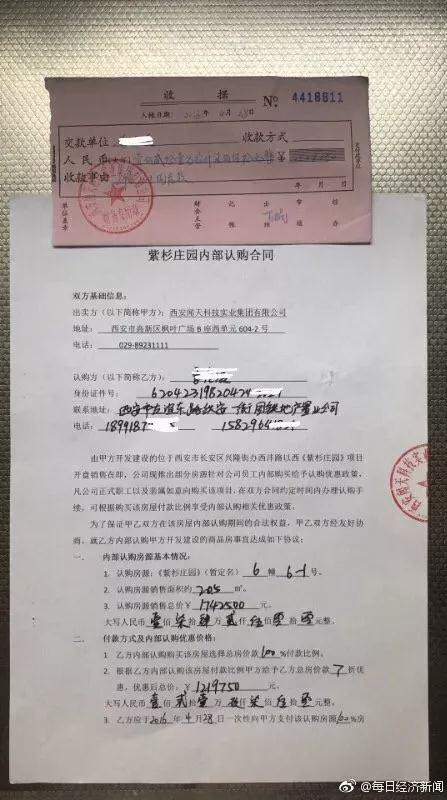 收据
入帐日期: 2016年4月28日 № 4418811
交款单位 收款方式
人民币(大写)
收款事由
年 月 日
单位盖章 财会主管 记帐 出纳 审核 经办
紫杉庄园内部认购合同
双方基础信息:
出卖方(以下简称甲方):西安闻天科技实业集团有限公司
地址: 西安市高新区枫叶广场 B 座西单元 604-2 号
电话: 029-89231111
认购方(以下简称乙方):
身份证号: 62042319820424
联系地址: 西安市友谊东路
电话: 189918 1582964
由甲方开发建设的位于西安市长安区兴隆街办西沣路以西《紫杉庄园》项目
开盘销售在即,公司现推出部分房源针对公司员工内部购买给予认购优惠政策,
凡公司正式职工以及亲属如意向购买该项目,在双方合同约定时间内办理认购手
续,可根据购买该房屋付款比例享受内部认购相关优惠政策。
为了保证甲乙双方在该房屋内部认购期间的合法权益,甲乙双方经友好协
商,就乙方内部认购甲方开发建设的商品房事宜达成如下协议:
一、 内部认购房源基本情况:
1. 认购房源:《紫杉庄园》(暂定名) 6 幢 6-1 号。
2. 认购房源销售面积约 205 ㎡。
3. 认购房源销售总价¥ 1742500 元。
大写人民币 壹佰柒拾肆万贰仟伍佰零拾零元整。
二、 付款方式及内部认购优惠价格:
1. 乙方内部认购购买该房屋选择总房价款 100 %付款比例。
2. 根据乙方内部认购该房屋付款比例甲方给予乙方总房价款 7 折优
惠,优惠后总价: 1219750 元。
大写人民币 壹佰贰拾壹万玖仟柒佰伍拾零元整。
3. 乙方应于 2016 年 4 月 28 日一次性向甲方支付该认购房源 100 %房
@每日经济新闻